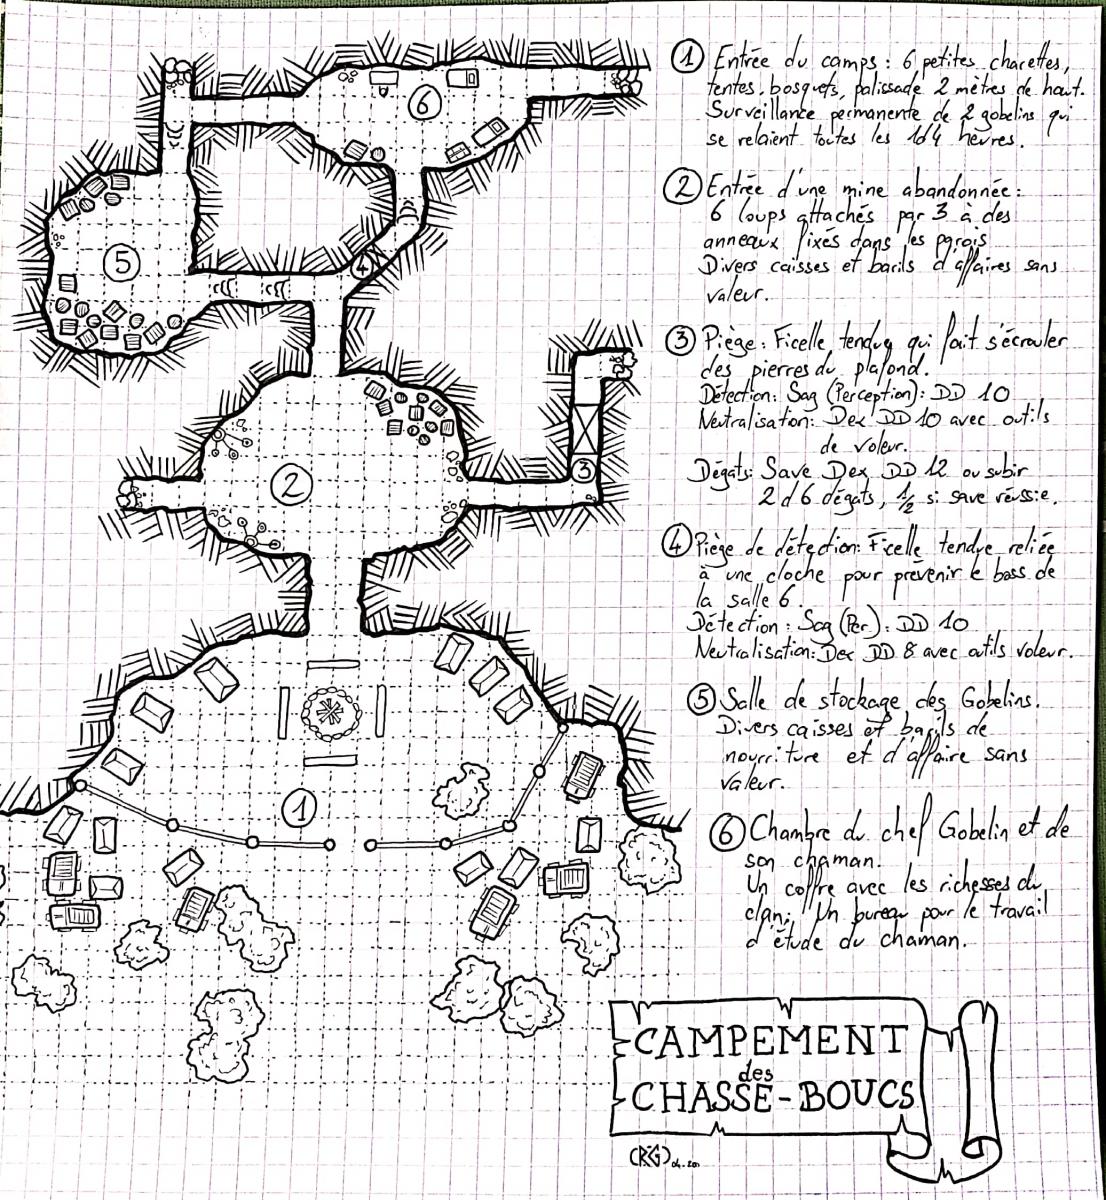 ① Entrée du camps : 6 petites charettes,
tentes, bosquets, palissade 2 mètres de haut.
Surveillance permanente de 2 gobelins qui
se relaient toutes les 1d4 heures.
② Entrée d'une mine abandonnée :
6 loups attachés par 3 à des
anneaux fixés dans les parois
Divers caisses et barils d'affaires sans
valeur.
③ Piège : Ficelle tendue qui fait s'écrouler
des pierres du plafond.
Détection : Sag (Perception) : DD 10
Neutralisation : Dex DD 10 avec outils
de voleur.
Dégats : Save Dex DD 12 ou subir
2d6 dégats, 1/2 si save réussie.
④ Piège de détection : Ficelle tendue reliée
à une cloche pour prévenir le boss de
la salle 6.
Détection : Sag (Per.) : DD 10
Neutralisation : Dex DD 8 avec outils voleur.
⑤ Salle de stockage des Gobelins.
Divers caisses et barils de
nourriture et d'affaire sans
valeur.
⑥ Chambre du chef Gobelin et de
son chaman.
Un coffre avec les richesses du
clan, Un bureau pour le travail
d'étude du chaman.
6
5
4
3
2
1
CAMPEMENT
des
CHASSE-BOUCS